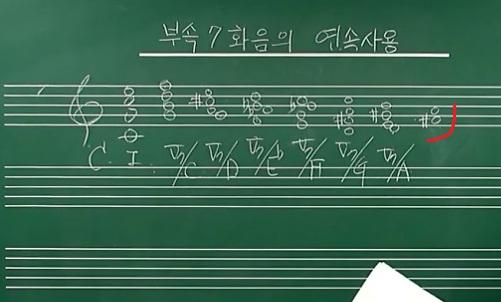 부속7화음의 연속사용
C. I V7/C V7/D V7/E V7/F V7/G V7/A